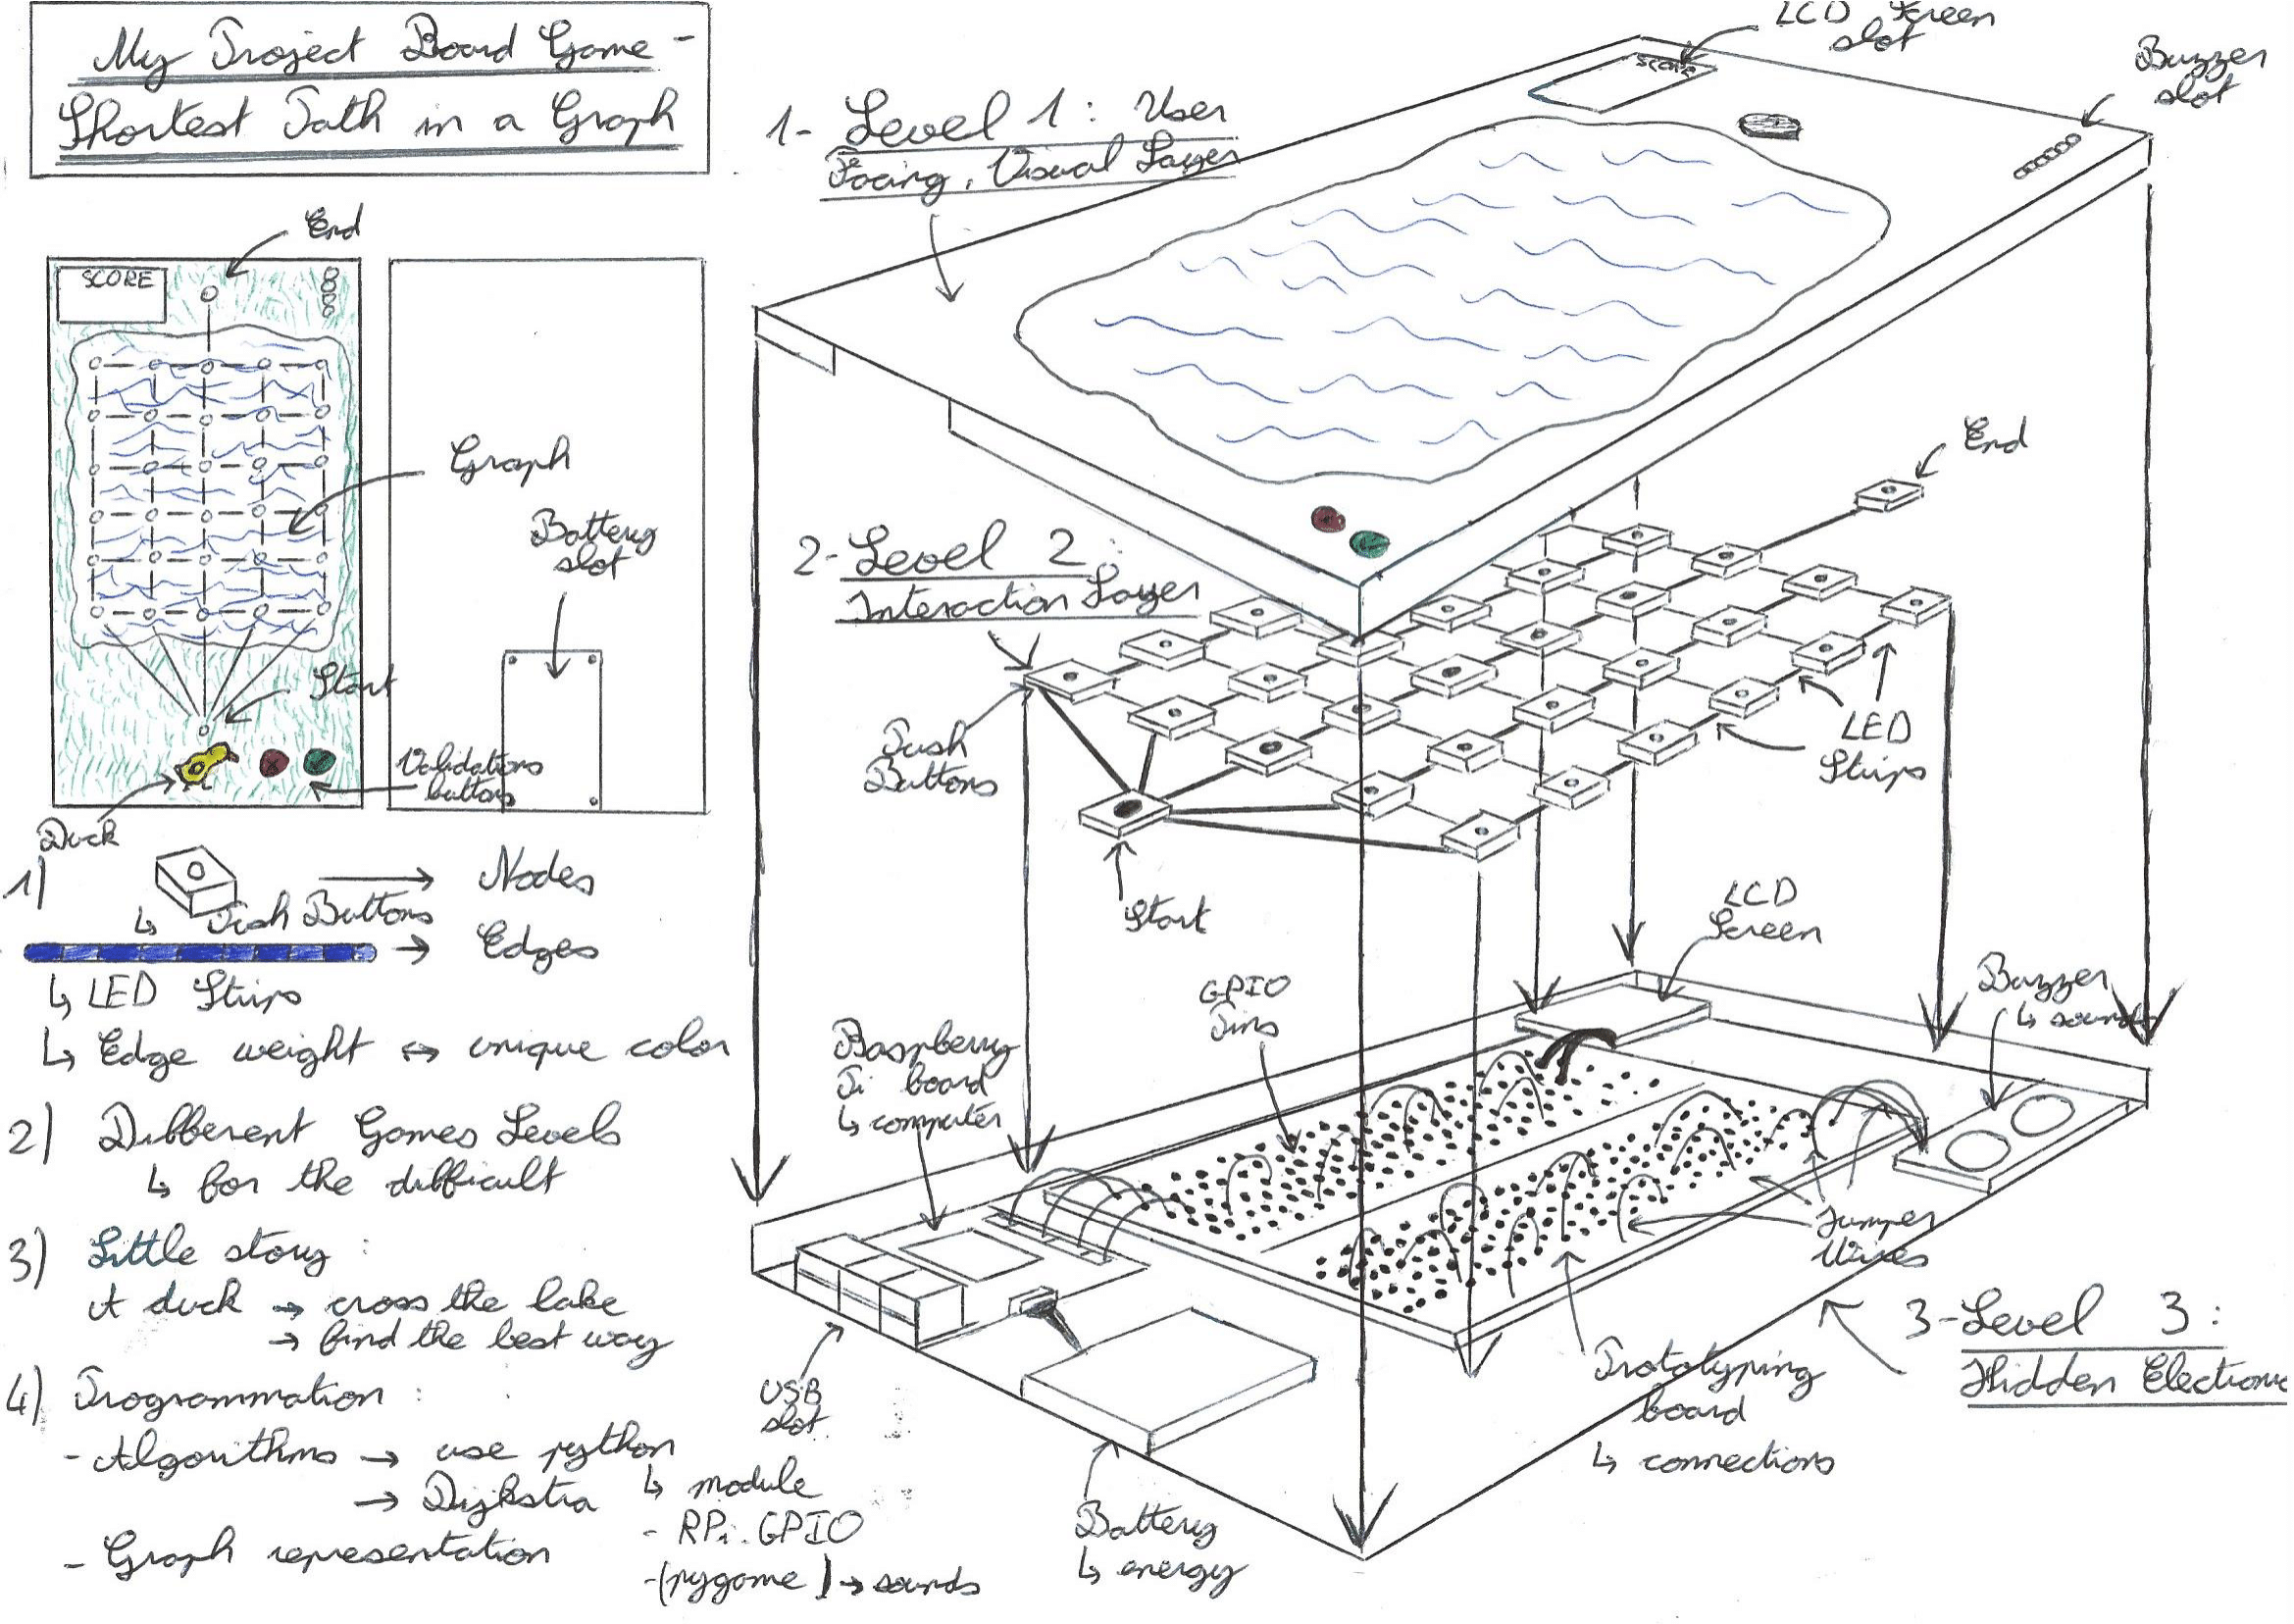 My Project Board Game -
Shortest Path in a Graph
End
SCORE
Graph
Battery
slot
Start
Validations
buttons
Duck
1)
Push Buttons → Nodes
→ Edges
↳ LED Strips
↳ Edge weight ↔ unique color
2) Different Games Levels
↳ for the difficult
3) Little story :
A duck → cross the lake
→ find the best way
4) Programmation :
- Algorithms → use python
→ Dijkstra
↳ module
- RPi.GPIO
- (pygame) → sounds
- Graph representation
1- Level 1 : User
Facing, Visual Layer
LCD Screen
slot
SCORE
Buzzer
slot
2- Level 2 :
Interaction Layer
End
Push
Buttons
LED
Strips
Start
LCD
Screen
GPIO
Pins
Buzzer
↳ sounds
Raspberry
Pi board
↳ computer
Jumper
Wires
USB
slot
Prototyping
board
↳ connections
Battery
↳ energy
3- Level 3 :
Hidden Electronic